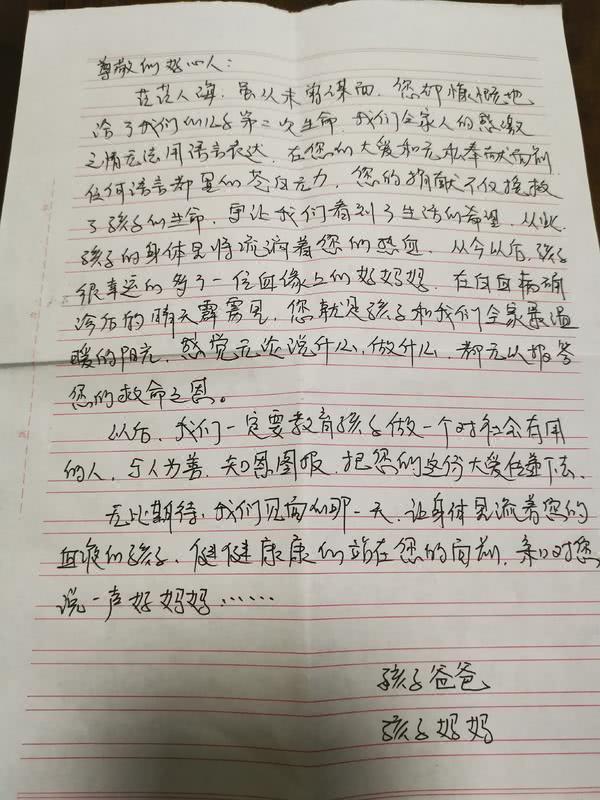 尊敬的好心人：
茫茫人海，虽从未谋面，您却慷慨地
给了我们的儿子第二次生命，我们全家人的感激
之情无法用语言表达，在您的大爱和无私奉献面前
任何语言都是的苍白无力，您的捐献不仅拯救
了孩子的生命，更让我们看到了生活的希望，从此
孩子的身体里将流淌着您的热血，从今以后，孩子
很幸运的多了一位血缘上的好妈妈，在白血病确
诊后的晴天霹雳里，您就是孩子和我们全家最温
暖的阳光，感觉无论说什么，做什么，都无以报答
您的救命之恩。
以后，我们一定要教育孩子做一个对社会有用
的人，与人为善，知恩图报，把您的这份大爱传递下去。
无比期待，我们见面的那一天，让身体里流着您的
血液的孩子，健健康康的站在您的面前，亲口对您
说一声好妈妈……
孩子爸爸
孩子妈妈